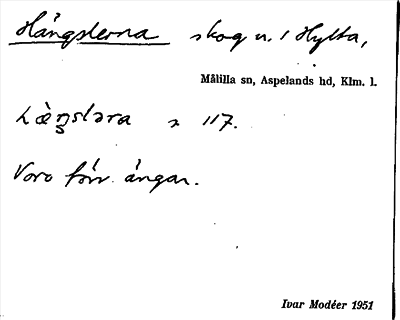 Hängslerna skog u. / Hylta,
Målilla sn, Aspelands hd, Klm. l.
117.
Voro förr ängar.
Ivar Modéer 1951